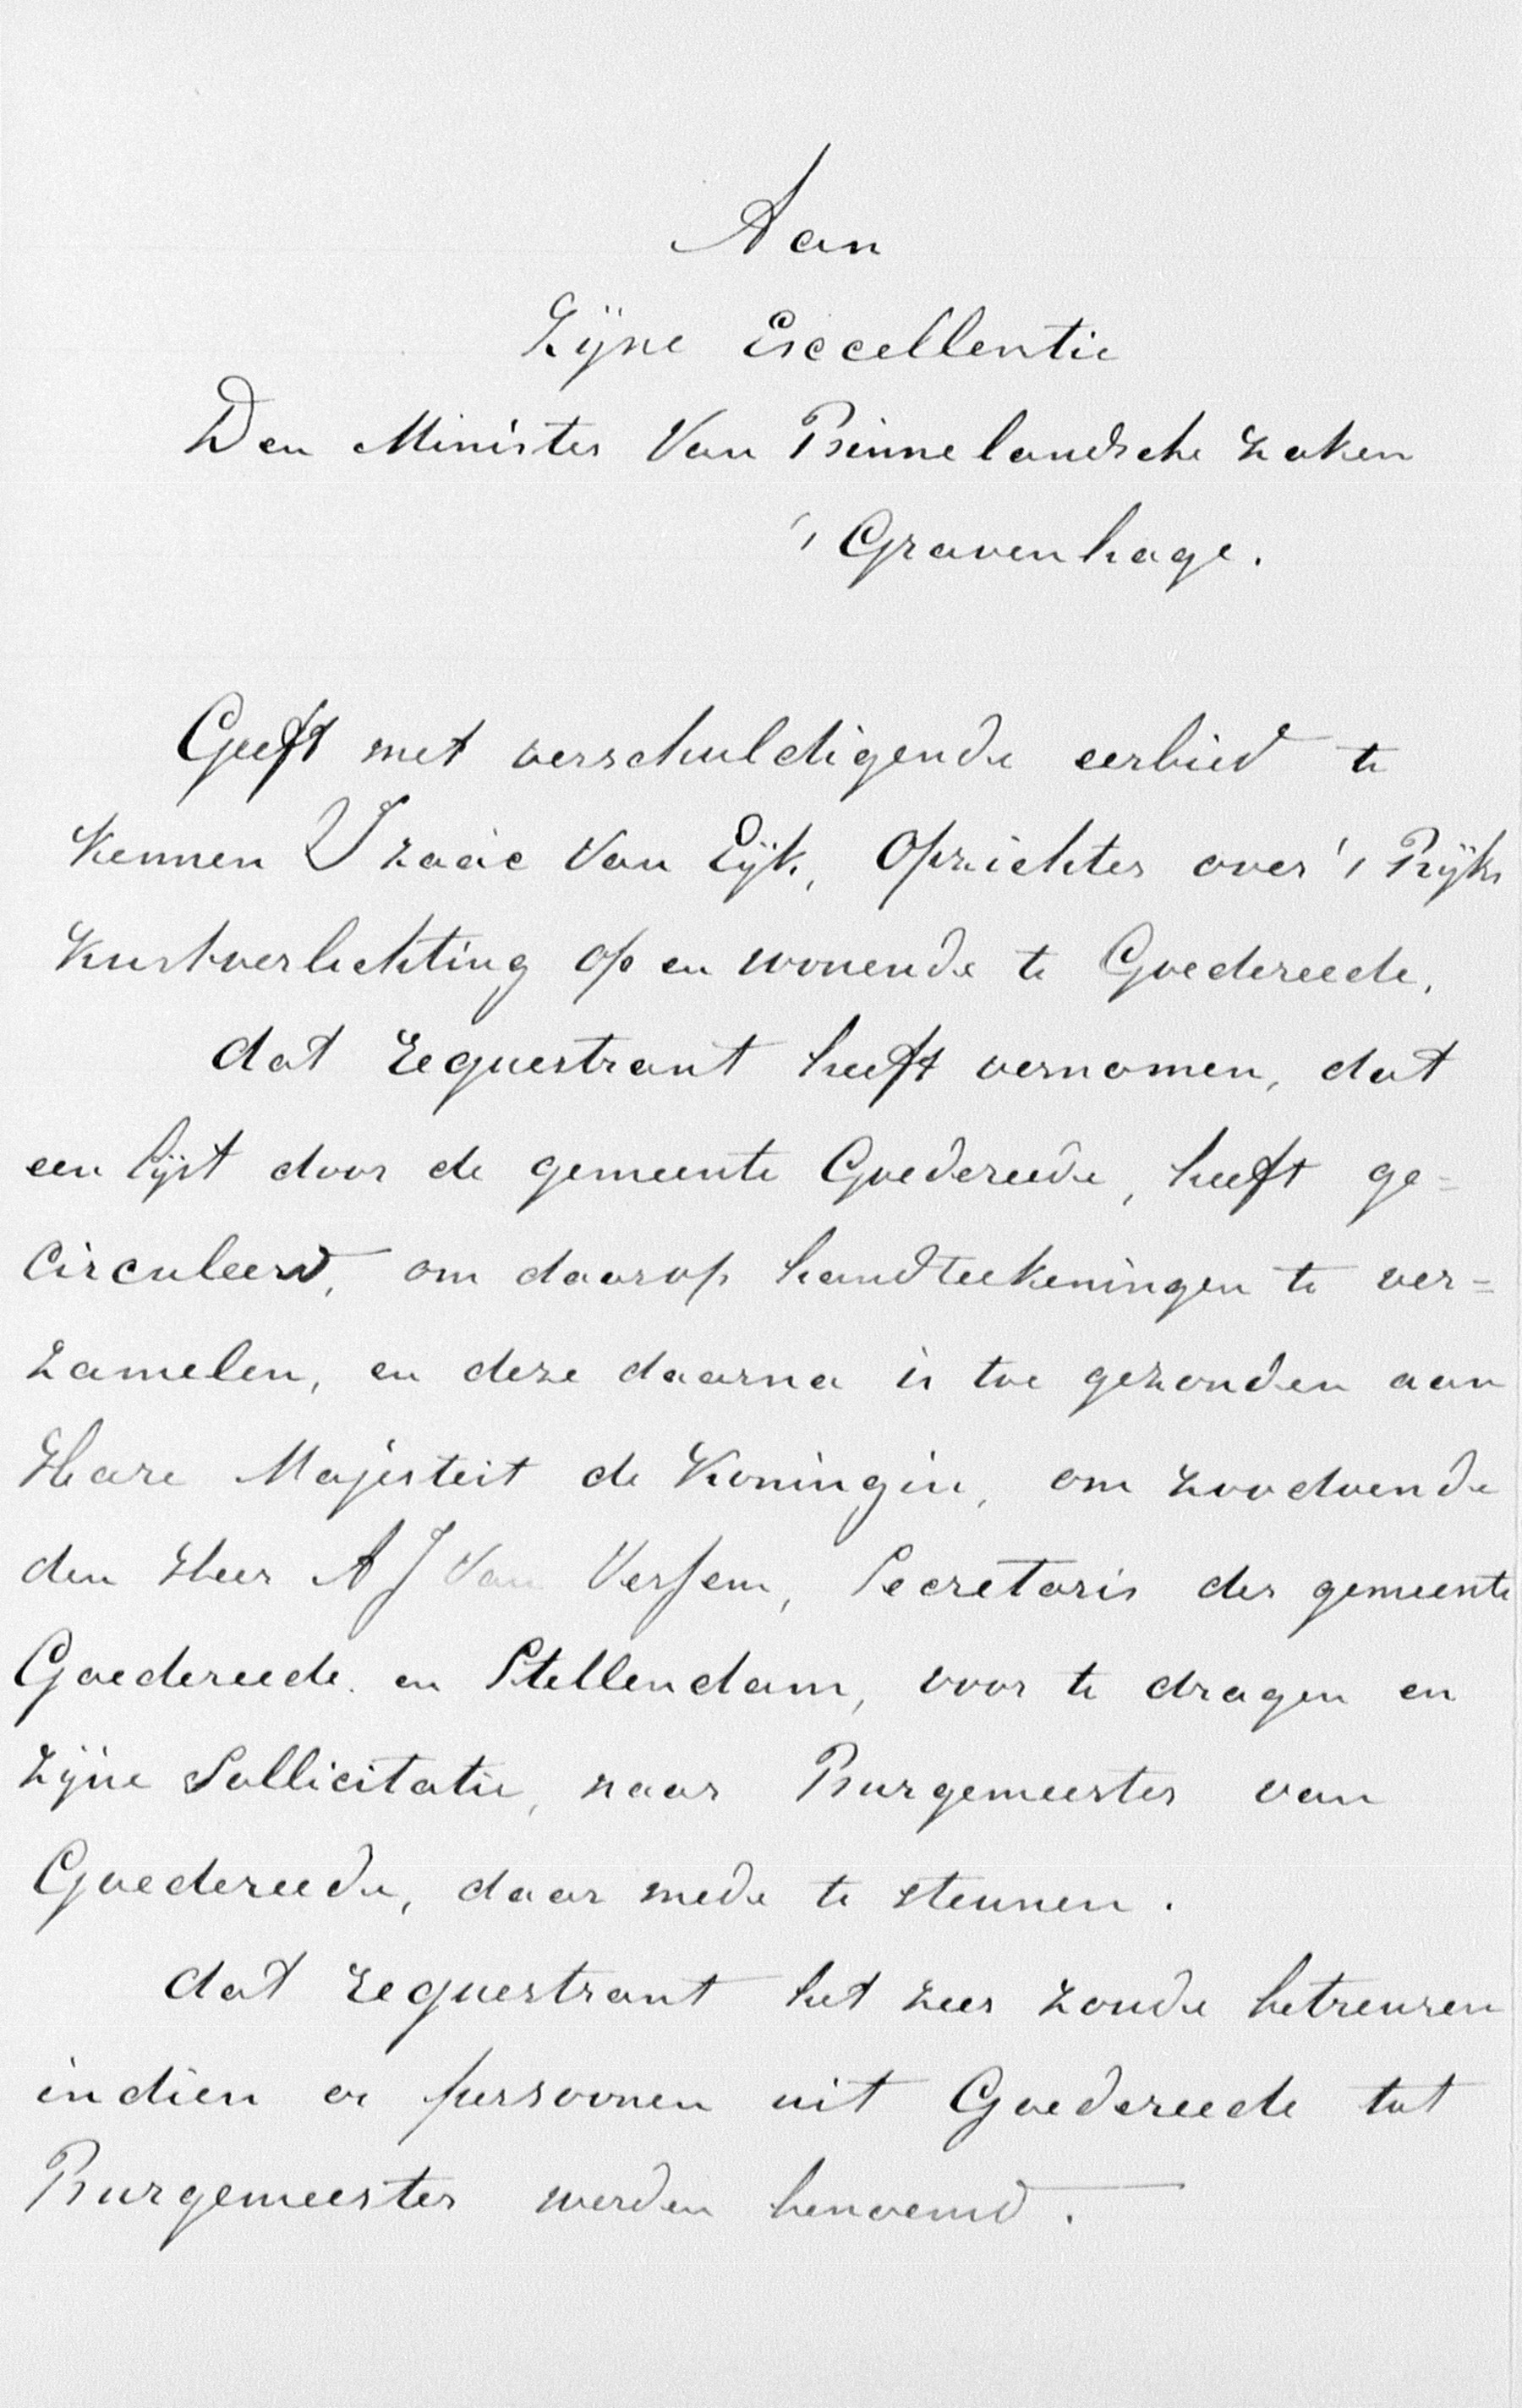 Aan
Zijne Excellentie
Den Minister Van Binnelandsche zaken
's Gravenhage.
Geeft met verschuldigende eerbied te
kennen Izaäc Van Eijk, Opzichter over 's Rijks
kustverlichting op en wonende te Goedereede,
dat requestrant heeft vernomen, dat
een lijst door de gemeente Goedereede, heeft ge=
circuleerd, om daarop handteekeningen te ver=
zamelen, en deze daarna is toe gezonden aan
Hare Majesteit de Koningin, om zoodoende
den Heer A J Van Verssen, Secretaris der gemeente
Goedereede en Stellendam, voor te dragen en
zijne Sollicitatie, naar Burgemeester van
Goedereede, daar mede te steunen.
dat requestrant het zeer zoude betreuren
indien er persoonen uit Goedereede tot
Burgemeester werden benoemd.